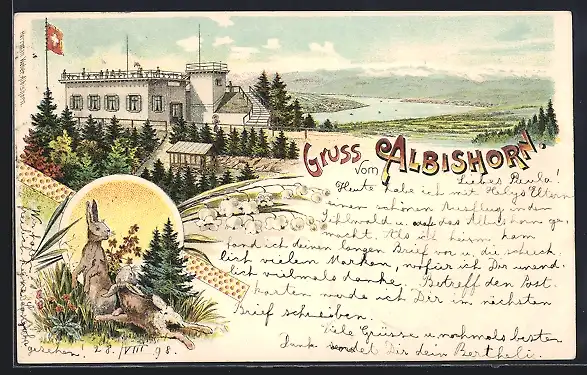 Gruss vom Albishorn.
Liebes Paula!
Heute habe ich mit Helgs Eltern
einen schönen Ausflug in den
Sihlwald u. auf das Albishorn ge-
macht. Als ich heim kam
fand ich deinen langen Brief vor u. die schreck-
lich vielen Marken, wofür ich Dir unend-
lich vielmals danke. Betreff den Post-
karten werde ich Dir im nächsten
Brief schreiben.
Viele Grüsse u. nochmals besten
Dank sendet Dir dein Bertheli.
gesehen! 28. VIII 98.